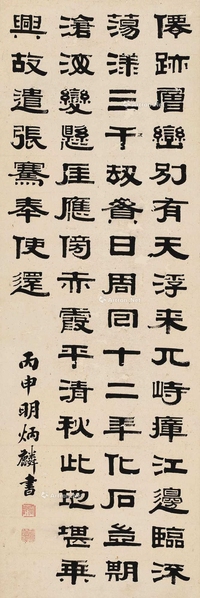 僊跡層巒別有天浮来兀峙瘴江邊臨深
蕩漾三千劫日周囘十二年化石豈期
滄海變懸厓應傍赤霞平清秋此地堪乗
興故遣張騫奉使還
丙申明炳麟書